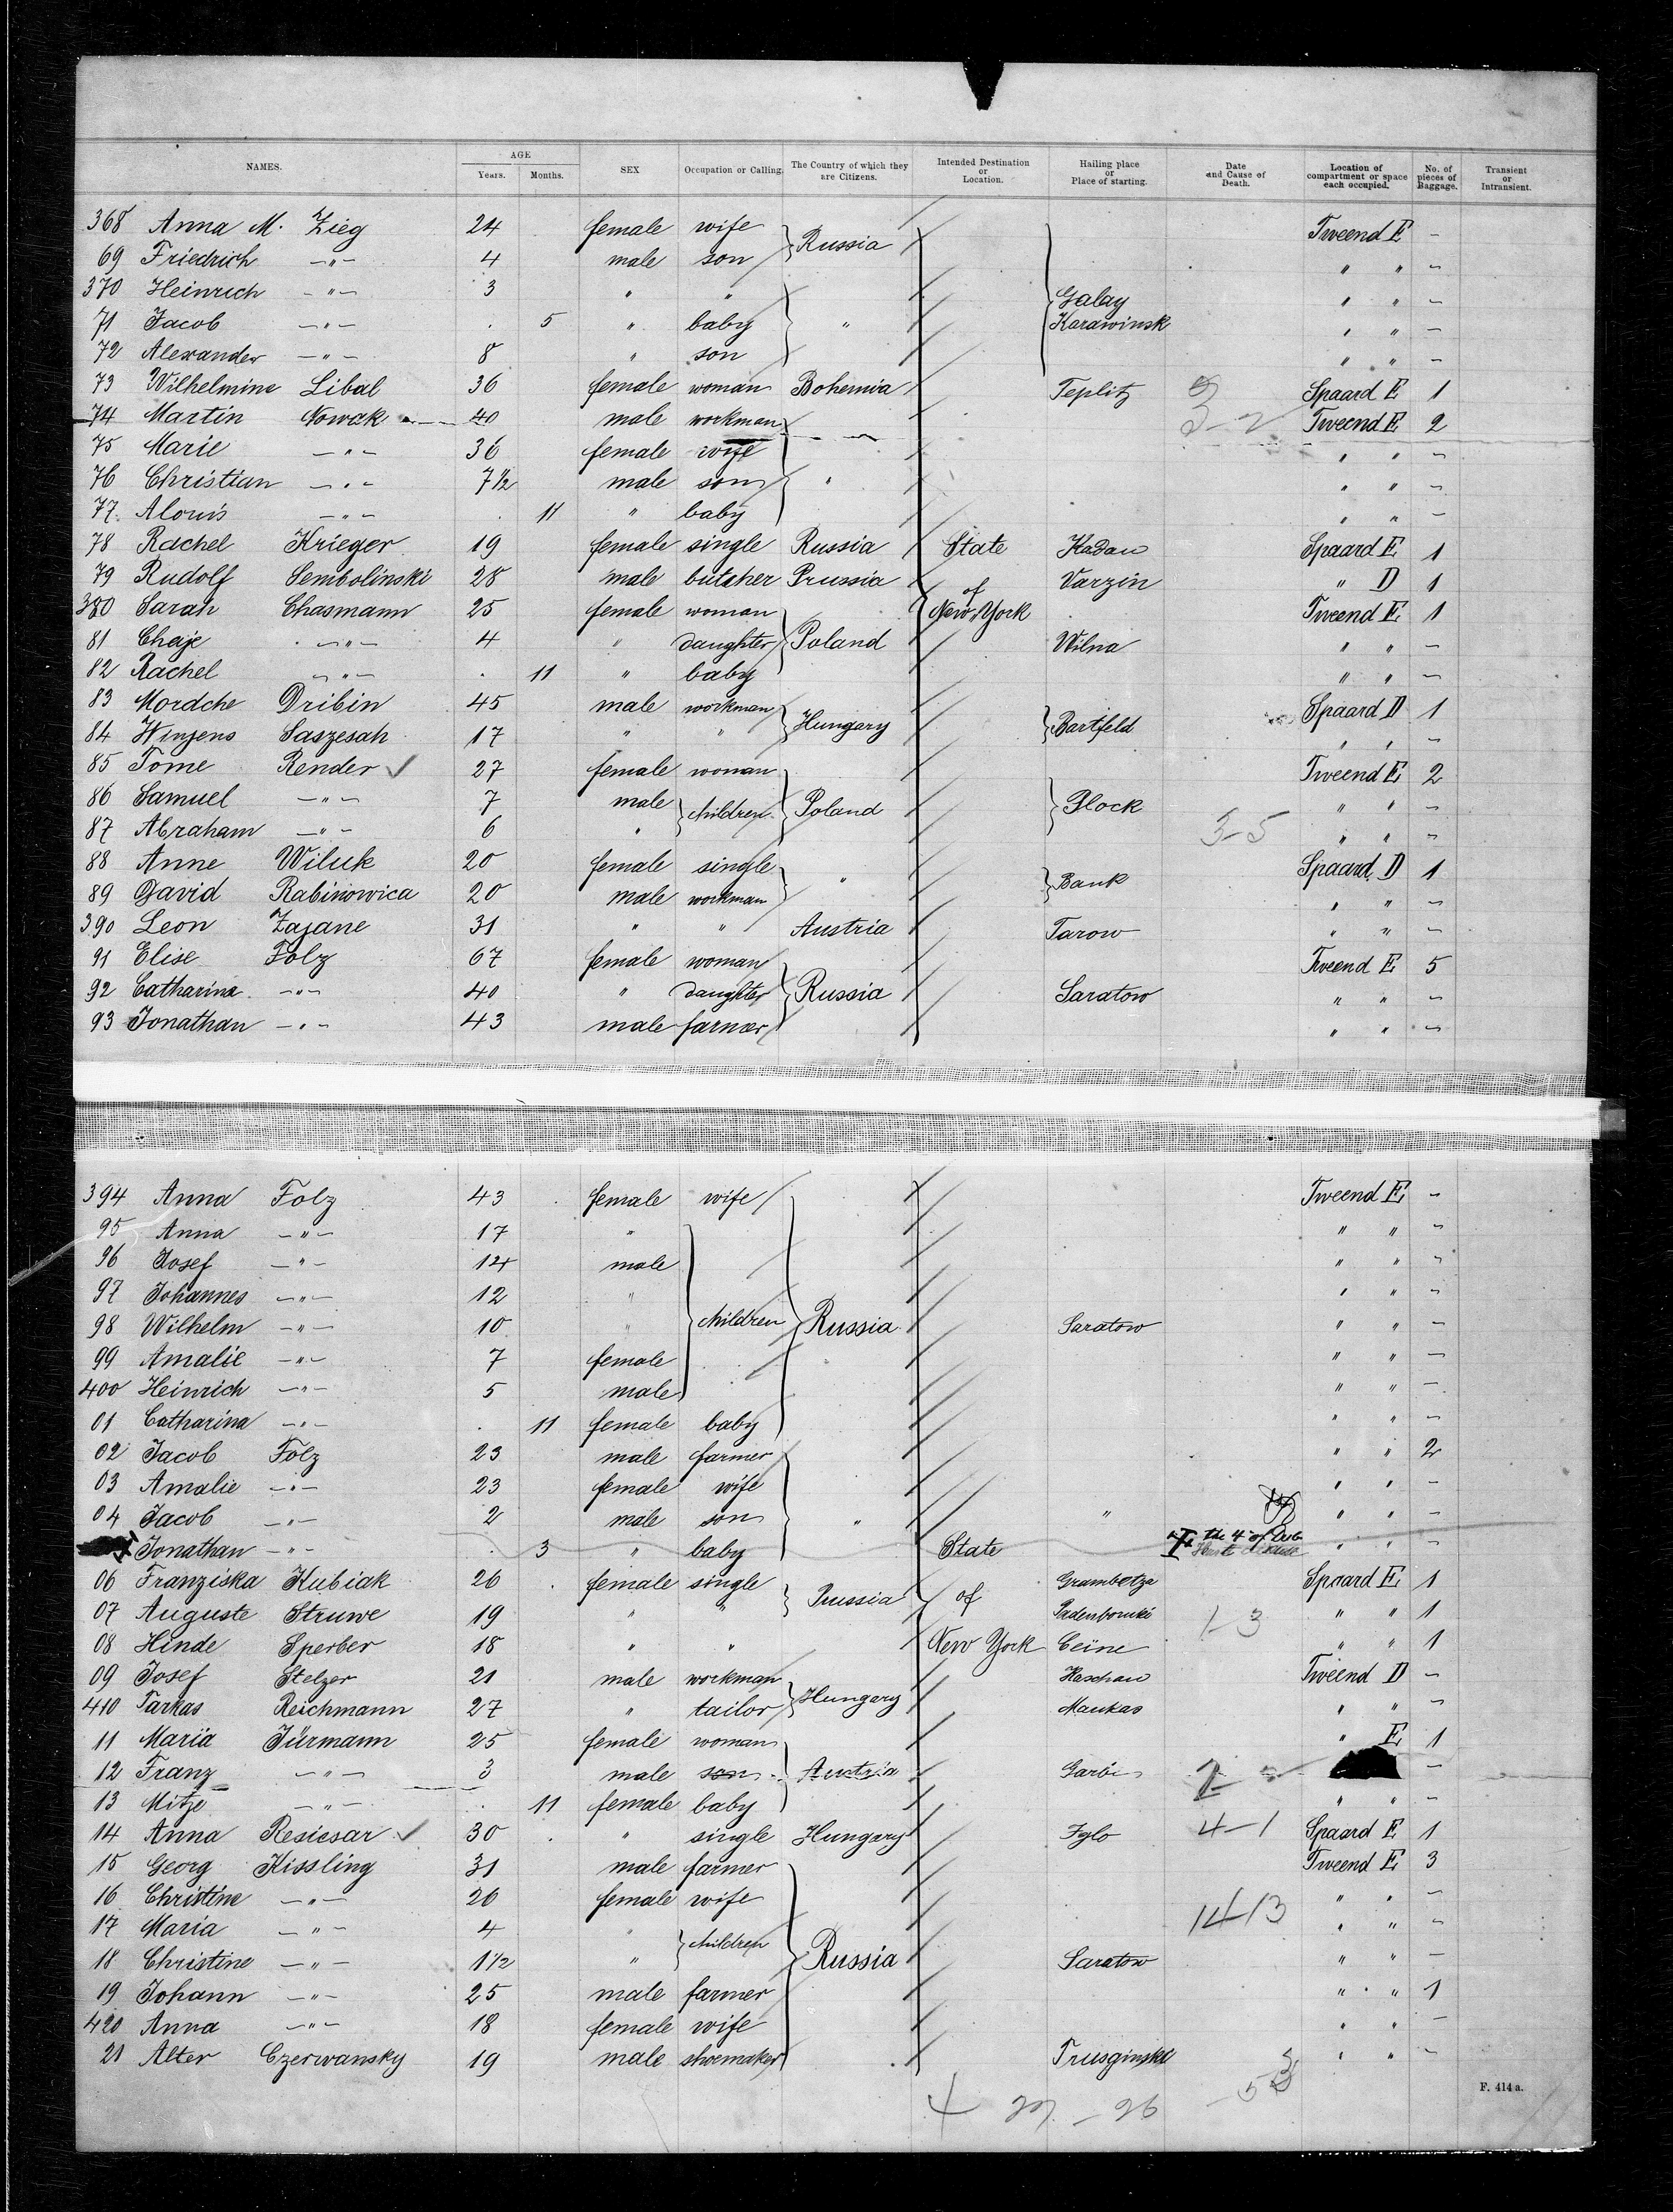 NAMES. AGE SEX Occupation or Calling. The Country of which they are Citizens. Intended Destination or Location. Hailing place or Place of starting. Date and Cause of Death. Location of compartment or space each occupied. No. of pieces of Baggage. Transient or Intransient.
Years. Months.
368 Anna M. Zieg 24 female wife Russia Tweend E -
69 Friedrich -"- 4 male son " " -
370 Heinrich -"- 3 " " Galay " " -
71 Jacob -"- . 5 " baby " Karawinsk " " -
72 Alexander -"- 8 " son " " -
73 Wilhelmine Libal 36 female woman Bohemia Teplitz Spaard E 1
74 Martin Nowak 40 male workman Tweend E 2
75 Marie -"- 36 female wife " " -
76 Christian -"- 7 1/2 male son " " " -
77 Alouis -"- . 11 " baby " " -
78 Rachel Krieger 19 female single Russia State Kadan Spaard E 1
79 Rudolf Sembolinski 28 male butcher Prussia of Varzin " D 1
380 Sarah Chasmann 25 female woman New York Tweend E 1
81 Chaje -"- 4 " daughter Poland Wilna " " -
82 Rachel -"- . 11 " baby " " -
83 Mordche Dribin 45 male workman Hungary Bartfeld Spaard D 1
84 Winzens Saszesah 17 " " " " -
85 Tome Render 27 female woman Tweend E 2
86 Samuel -"- 7 male children Poland Plock " " -
87 Abraham -"- 6 " 3-5 " " -
88 Anne Wiluk 20 female single " Bank Spaard D 1
89 David Rabinowica 20 male workman " " -
390 Leon Zajane 31 " " Austria Tarow " " -
91 Elise Folz 67 female woman Tweend E 5
92 Catharina -"- 40 " daughter Russia Saratow " " -
93 Jonathan -"- 43 male farmer " " -
394 Anna Folz 43 female wife Tweend E -
95 Anna -"- 17 " " " -
96 Josef -"- 14 male " " -
97 Johannes -"- 12 " " " -
98 Wilhelm -"- 10 " children Russia Saratow " " -
99 Amalie -"- 7 female " " -
400 Heinrich -"- 5 male " " -
01 Catharina -"- . 11 female baby " " -
02 Jacob Folz 23 male farmer " " 2
03 Amalie -"- 23 female wife " " -
04 Jacob -"- 2 male son " " " " -
Jonathan -"- . 3 " baby State the 4 of " " -
06 Franziska Kubiak 26 female single Prussia of Grambetza Spaard E 1
07 Auguste Struwe 19 " " 1-3 " " 1
08 Hinde Sperber 18 " " New York Ceine " " 1
09 Josef Stelzer 21 male workman Hungary Kaschau Tweend D -
410 Farkas Reichmann 27 " tailor Munkas " " -
11 Maria Jürmann 25 female woman " E 1
12 Franz -"- 3 male son Austria -
13 Mitze -"- . 11 female baby " " -
14 Anna Resiesar 30 . " single Hungary Iglo 4-1 Spaard E 1
15 Georg Kissling 31 male farmer Tweend E 3
16 Christine -"- 26 female wife " " -
17 Maria -"- 4 " children " " -
18 Christine -"- 1 1/2 " Russia Saratow " " -
19 Johann -"- 25 male farmer " " 1
420 Anna -"- 18 female wife " " -
21 Alter Czerwansky 19 male shoemaker " " -
F. 414 a.